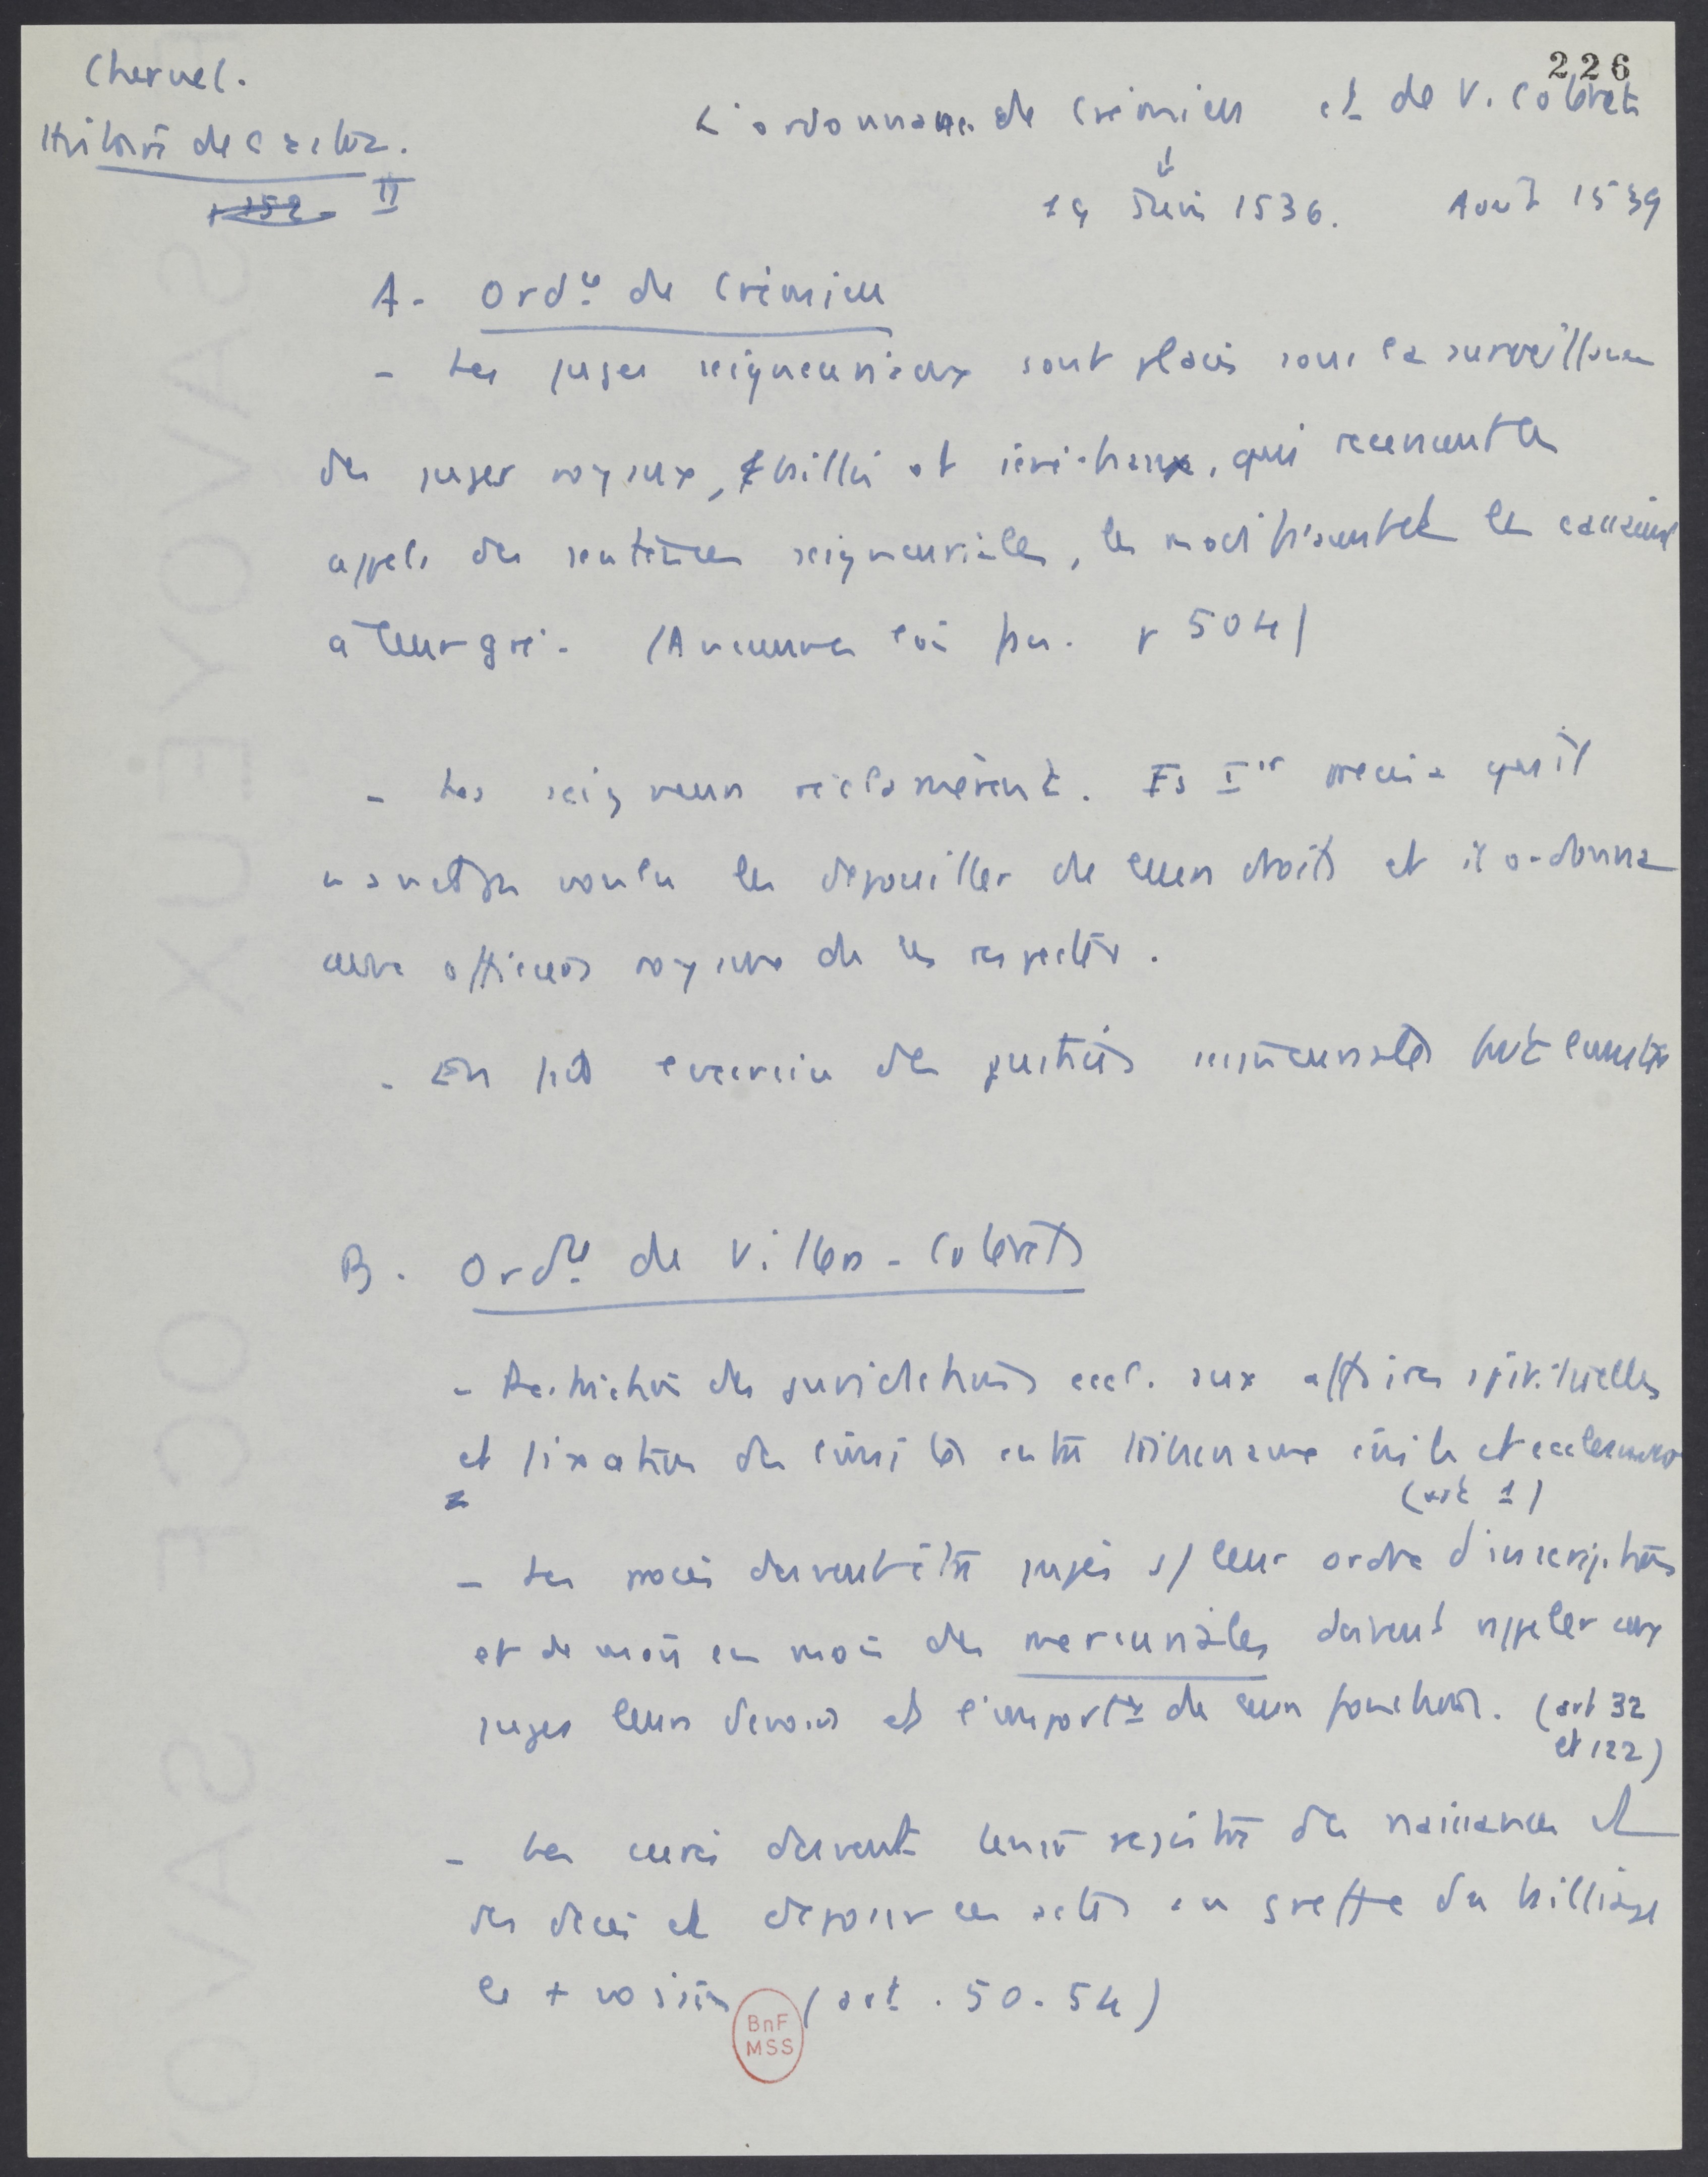 226
Cheruel.
L'ordonnance de Crémieu et de V. Cotterets
Histoire de
p 152 II
19 Juin 1536. Août 1539
A - Ord.ce de Crémieu
- Les juges seigneuriaux sont placés sous la surveillance
des juges royaux, baillis et sénéchaux, qui recevront les
appels des sentences seigneuriales, les modifieront et les casseront
à leur gré. (Anciennes lois fr. p 504)
- Les seigneurs réclamèrent. Fs Ier précisa qu'il
n'avait pas voulu les dépouiller de leurs droits et il ordonna
aux officiers royaux de les respecter.
- En fait exercice des justices seigneuriales fut limité
B. Ord.ce de Villers-Cotterets
- Restriction des juridictions eccl. aux affaires spirituelles
et fixation des limites entre tribunaux civils et ecclésiastiques
(art 1)
- Les procès devront être jugés s/ leur ordre d'inscription
et de mois en mois des mercuriales doivent rappeler aux
juges leurs devoirs et l'import.ce de leurs fonctions. (art 32
et 122)
- Les curés devront tenir registre des naissances et
des décès et déposer ces actes au greffe du bailliage
le + voisin (art. 50-54)
BnF
MSS